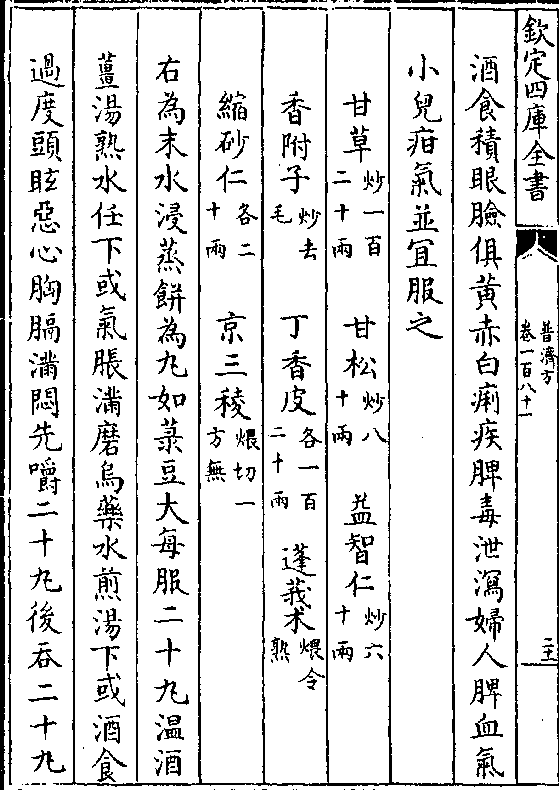 欽定四庫全書
普濟方
卷一百八十一
二十一
酒食積眼臉俱黃赤白痢疾脾毒泄瀉婦人脾血氣
小兒疳氣並宜服之
甘草炒一百二十兩　甘松炒八十兩　益智仁炒六十兩
香附子炒去毛　丁香皮各一百二十兩　蓬莪术煨令熟
縮砂仁各二十兩　京三稜煨切一方無
右為末水浸蒸餅為丸如菉豆大每服二十丸溫酒
薑湯熟水任下或氣脹滿磨烏藥水煎湯下或酒食
過度頭眩惡心胸膈滿悶先嚼二十丸後吞二十丸